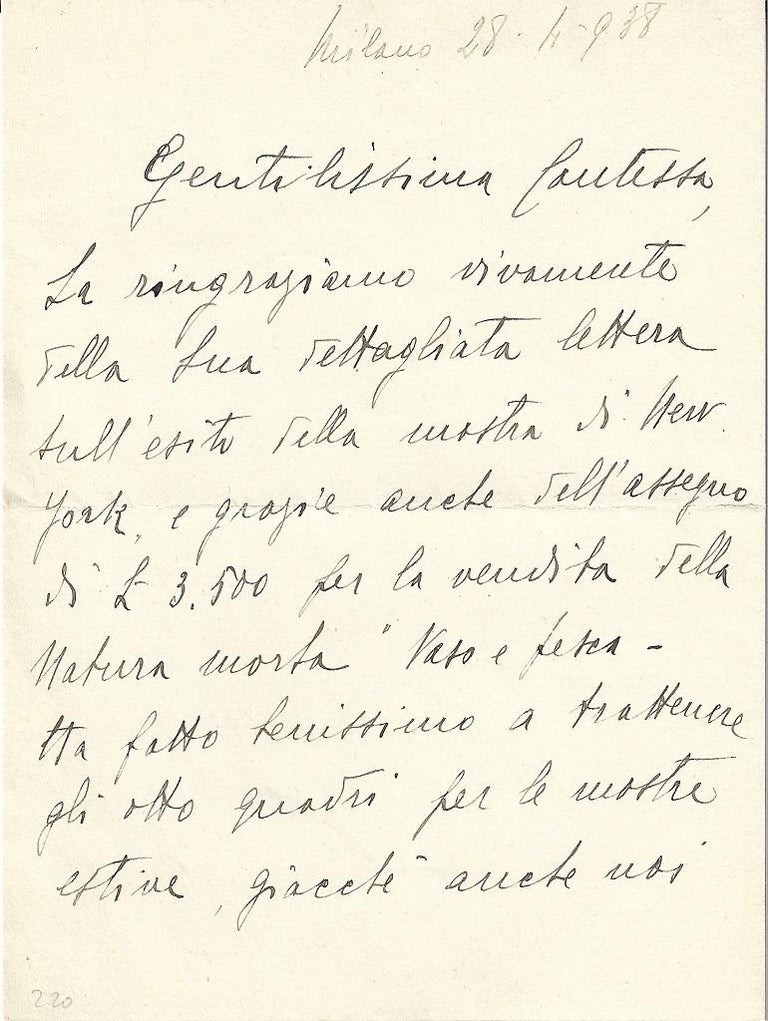 Milano 28-4-938
Gentilissima Contessa,
La ringraziamo vivamente
della Sua dettagliata lettera
sull'esito della mostra di New
York, e grazie anche dell'assegno
di £ 3.500 per la vendita della
Natura morta " Vaso e pesca -
Ha fatto benissimo a trattenere
gli otto quadri per le mostre
estive, giacchè anche noi
220